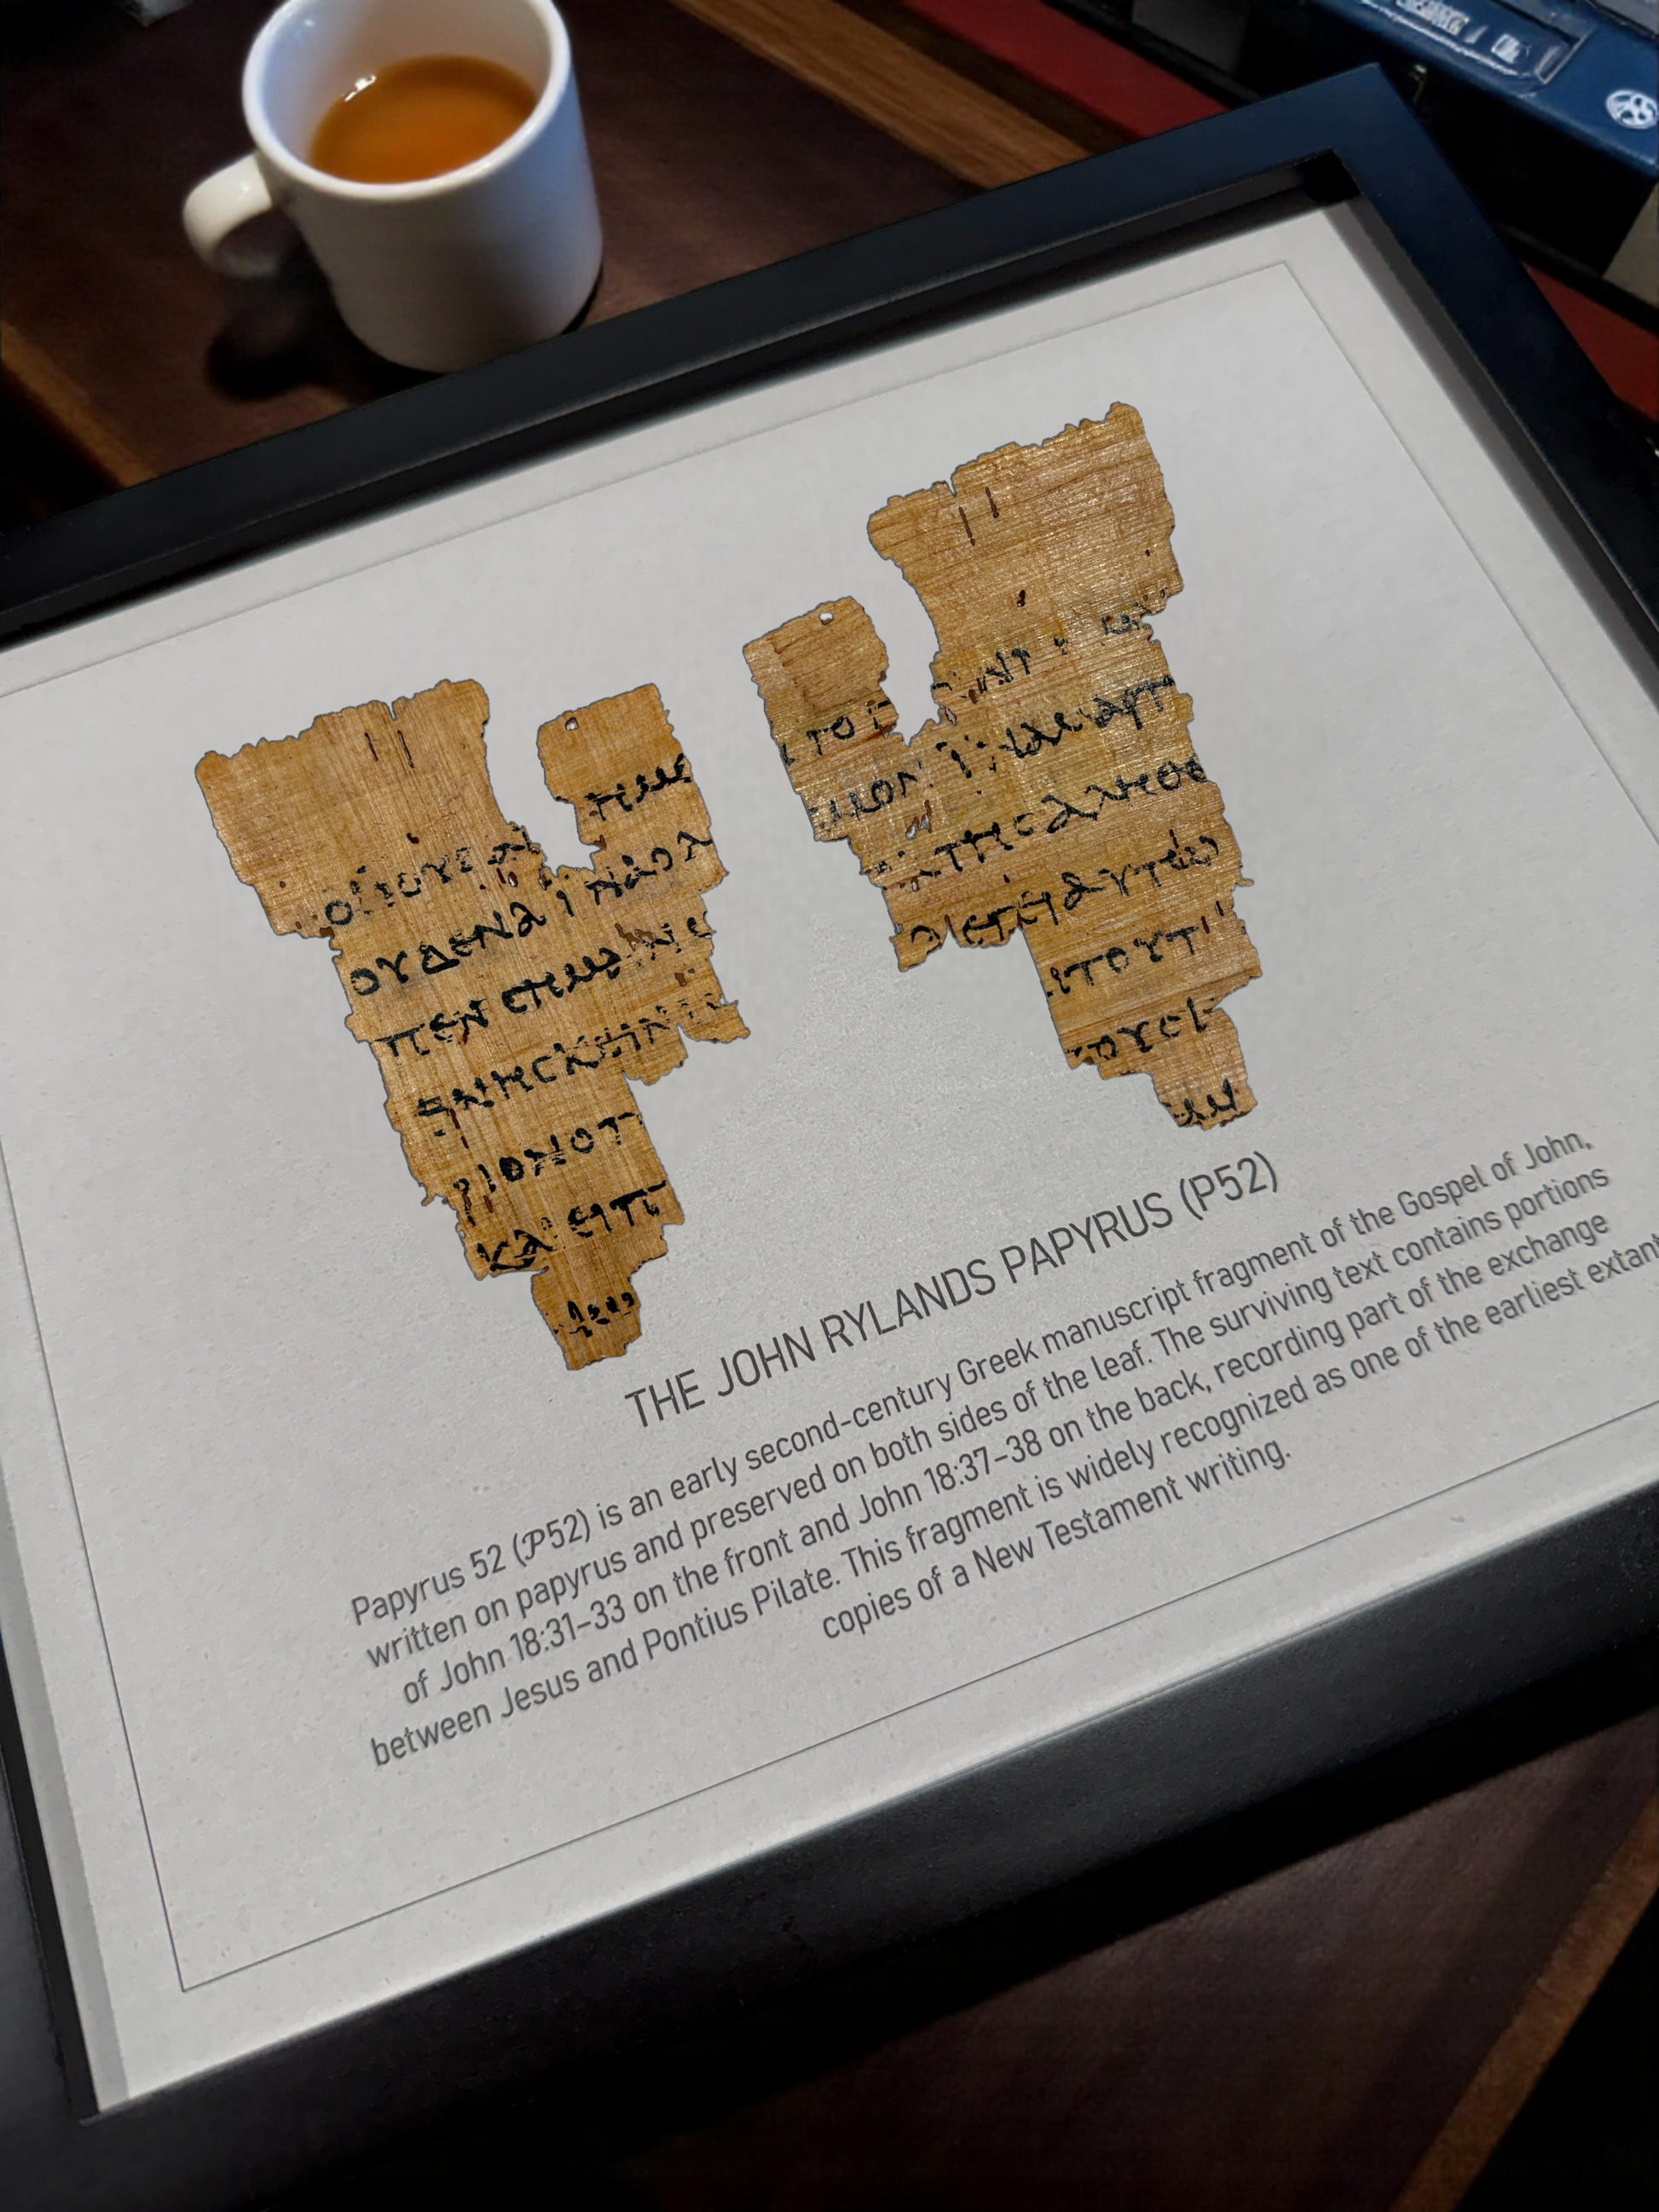 ΟΥΔΕΝΑ ΪΝΑΟΛ
ΠΕΝ CΗΜ
ΡΙΟΝΟΠ
ΚΑΙ ΕΙΠ
CΜΟΝ ΪΝΑ ΜΑΡΤ
ΤΗC ΑΛΗΘΕ
ΛΕΓΕΙ ΑΥΤΩ
ΤΟΥΤ
ΟΥCΙ
THE JOHN RYLANDS PAPYRUS (P52)
Papyrus 52 (𝒫52) is an early second-century Greek manuscript fragment of the Gospel of John,
written on papyrus and preserved on both sides of the leaf. The surviving text contains portions
of John 18:31–33 on the front and John 18:37–38 on the back, recording part of the exchange
between Jesus and Pontius Pilate. This fragment is widely recognized as one of the earliest extant
copies of a New Testament writing.